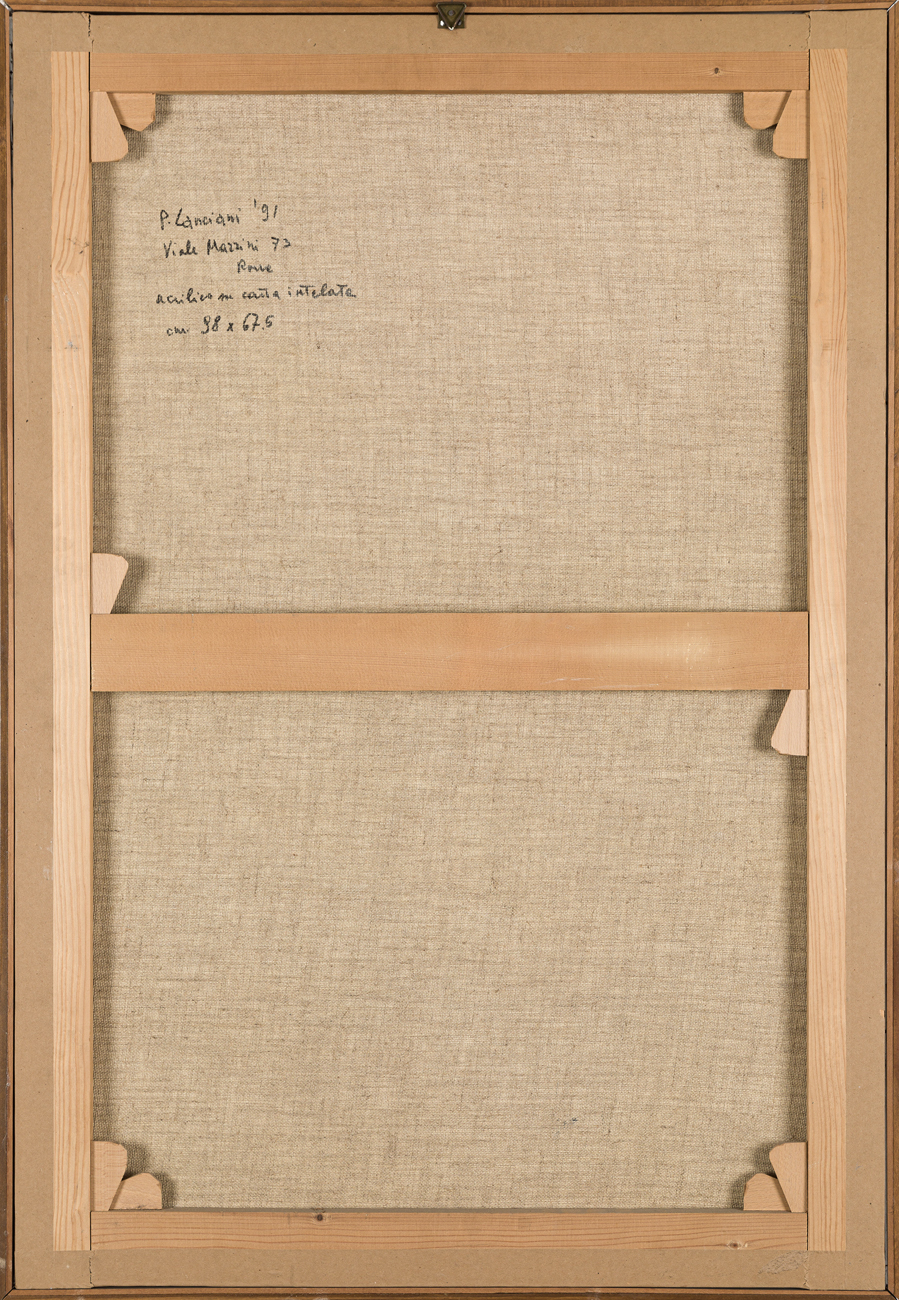 P. Lanciani '91
Viale Mazzini 73
Roma
acrilico su carta intelata
cm. 98 x 67.5